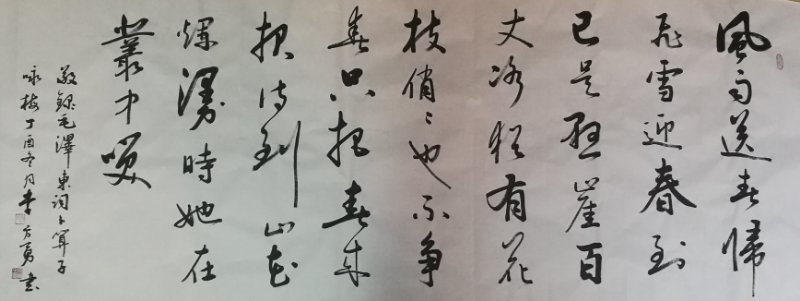 風雨送春歸
飛雪迎春到
已是懸崖百
丈冰猶有花
枝俏〻也不爭
春只把春來
報待到山花
爛漫時她在
叢中笑
敬錄毛澤東詞卜算子
咏梅丁酉冬月李方勇書